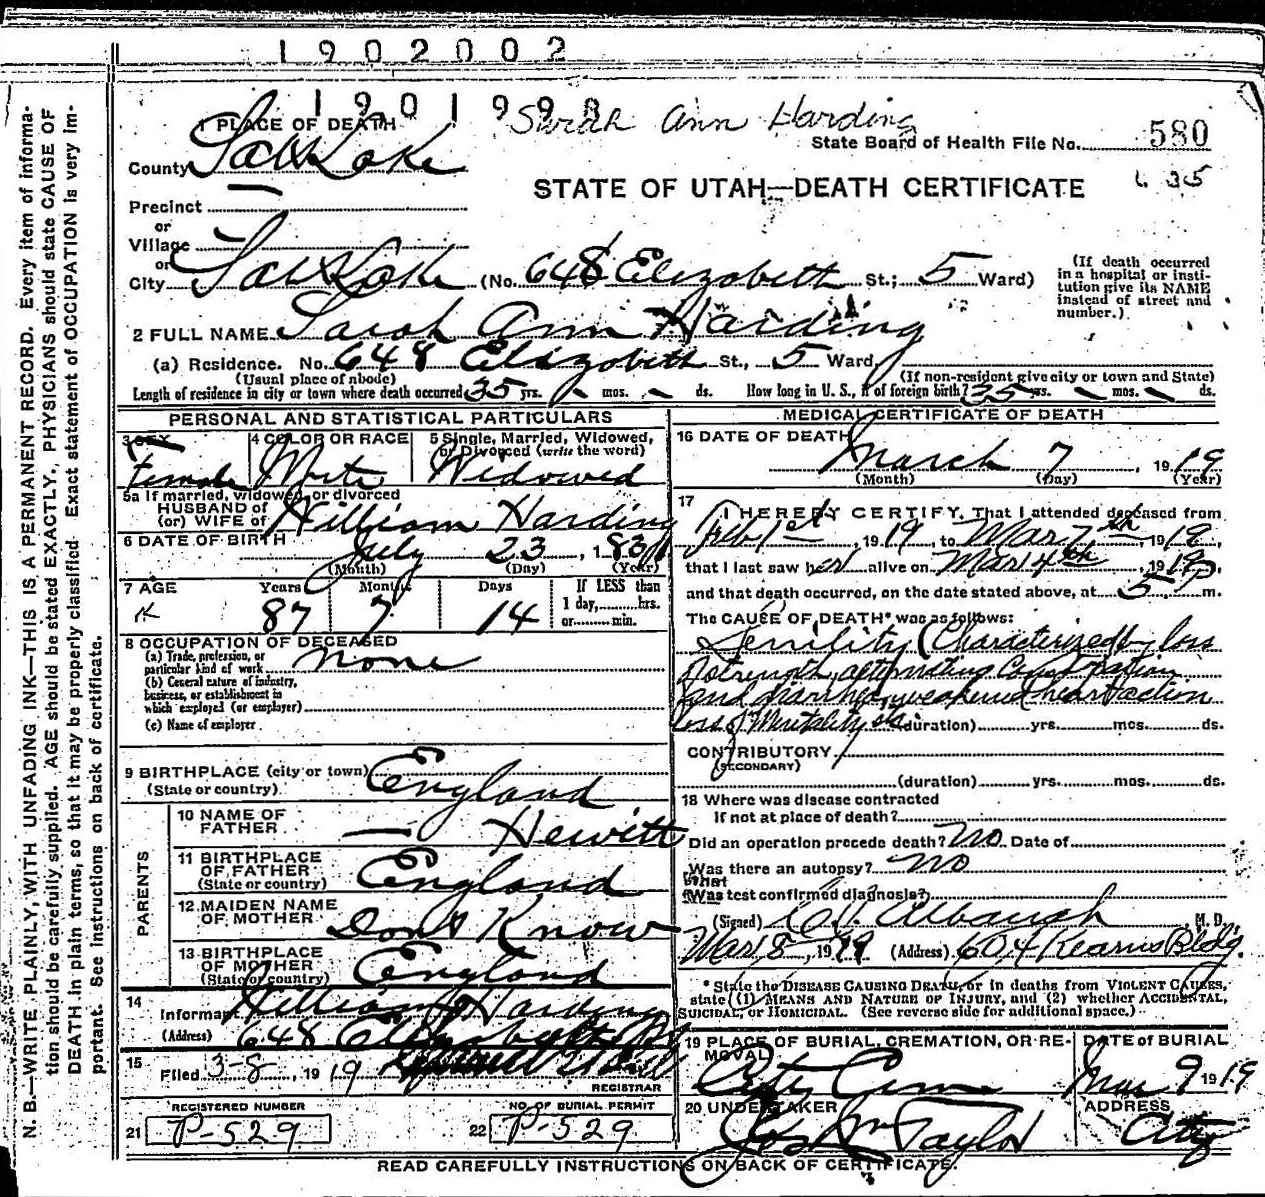 1902002
1901998
Sarah Ann Harding
1 PLACE OF DEATH
State Board of Health File No. 580
County Salt Lake
STATE OF UTAH—DEATH CERTIFICATE
Precinct
or
Village
or
City Salt Lake (No. 648 Elizabeth St.; 5 Ward)
(If death occurred in a hospital or institution give its NAME instead of street and number.)
2 FULL NAME Sarah Ann Harding
(a) Residence. No. 648 Elizabeth St., 5 Ward
(Usual place of abode) (If non-resident give city or town and State)
Length of residence in city or town where death occurred 35 yrs. - mos. - ds. How long in U. S., if of foreign birth? 35 yrs. - mos. - ds.
PERSONAL AND STATISTICAL PARTICULARS
3 SEX
Female
4 COLOR OR RACE
White
5 Single, Married, Widowed, or Divorced (write the word)
Widowed
5a If married, widowed, or divorced
HUSBAND of
(or) WIFE of William Harding
6 DATE OF BIRTH July 23, 1831
(Month) (Day) (Year)
7 AGE Years Months Days If LESS than
87 7 14 1 day, hrs.
or min.
8 OCCUPATION OF DECEASED
(a) Trade, profession, or
particular kind of work none
(b) General nature of industry,
business, or establishment in
which employed (or employer)
(c) Name of employer
9 BIRTHPLACE (city or town)
(State or country) England
PARENTS
10 NAME OF
FATHER — Hewitt
11 BIRTHPLACE
OF FATHER England
(State or country)
12 MAIDEN NAME
OF MOTHER Dont Know
13 BIRTHPLACE
OF MOTHER England
(State or country)
14
Informant William Harding
(Address) 648 Elizabeth
15
Filed 3-8, 1919
REGISTRAR
REGISTERED NUMBER
21 P-529
NO. OF BURIAL PERMIT
22 P-529
MEDICAL CERTIFICATE OF DEATH
16 DATE OF DEATH
March 7, 1919
(Month) (Day) (Year)
17 I HEREBY CERTIFY, That I attended deceased from
Feb 1st, 1919, to Mar 7th, 1919,
that I last saw her alive on Mar 4th, 1919,
and that death occurred, on the date stated above, at 5 P m.
The CAUSE OF DEATH* was as follows:
Senility (Characterized by loss
of strength, alternating Constipation
and diarrhea, weakened heart action
loss of Mentality etc (duration) yrs. mos. ds.
CONTRIBUTORY
(SECONDARY)
(duration) yrs. mos. ds.
18 Where was disease contracted
If not at place of death?
Did an operation precede death? No Date of
Was there an autopsy? No
What
Was test confirmed diagnosis?
(Signed) Albaugh M. D.
Mar 8, 1919 (Address) 604 Kearns Bldg.
* State the DISEASE CAUSING DEATH, or in deaths from VIOLENT CAUSES,
state (1) MEANS AND NATURE OF INJURY, and (2) whether ACCIDENTAL,
SUICIDAL, or HOMICIDAL. (See reverse side for additional space.)
19 PLACE OF BURIAL, CREMATION, OR RE-
MOVAL
City Cem
DATE of BURIAL
Mar 9 1919
20 UNDERTAKER
Jos Wm Taylor
ADDRESS
City
READ CAREFULLY INSTRUCTIONS ON BACK OF CERTIFICATE.
N. B.—WRITE PLAINLY, WITH UNFADING INK—THIS IS A PERMANENT RECORD. Every item of informa-
tion should be carefully supplied. AGE should be stated EXACTLY, PHYSICIANS should state CAUSE OF
DEATH in plain terms, so that it may be properly classified. Exact statement of OCCUPATION is very im-
portant. See Instructions on back of certificate.